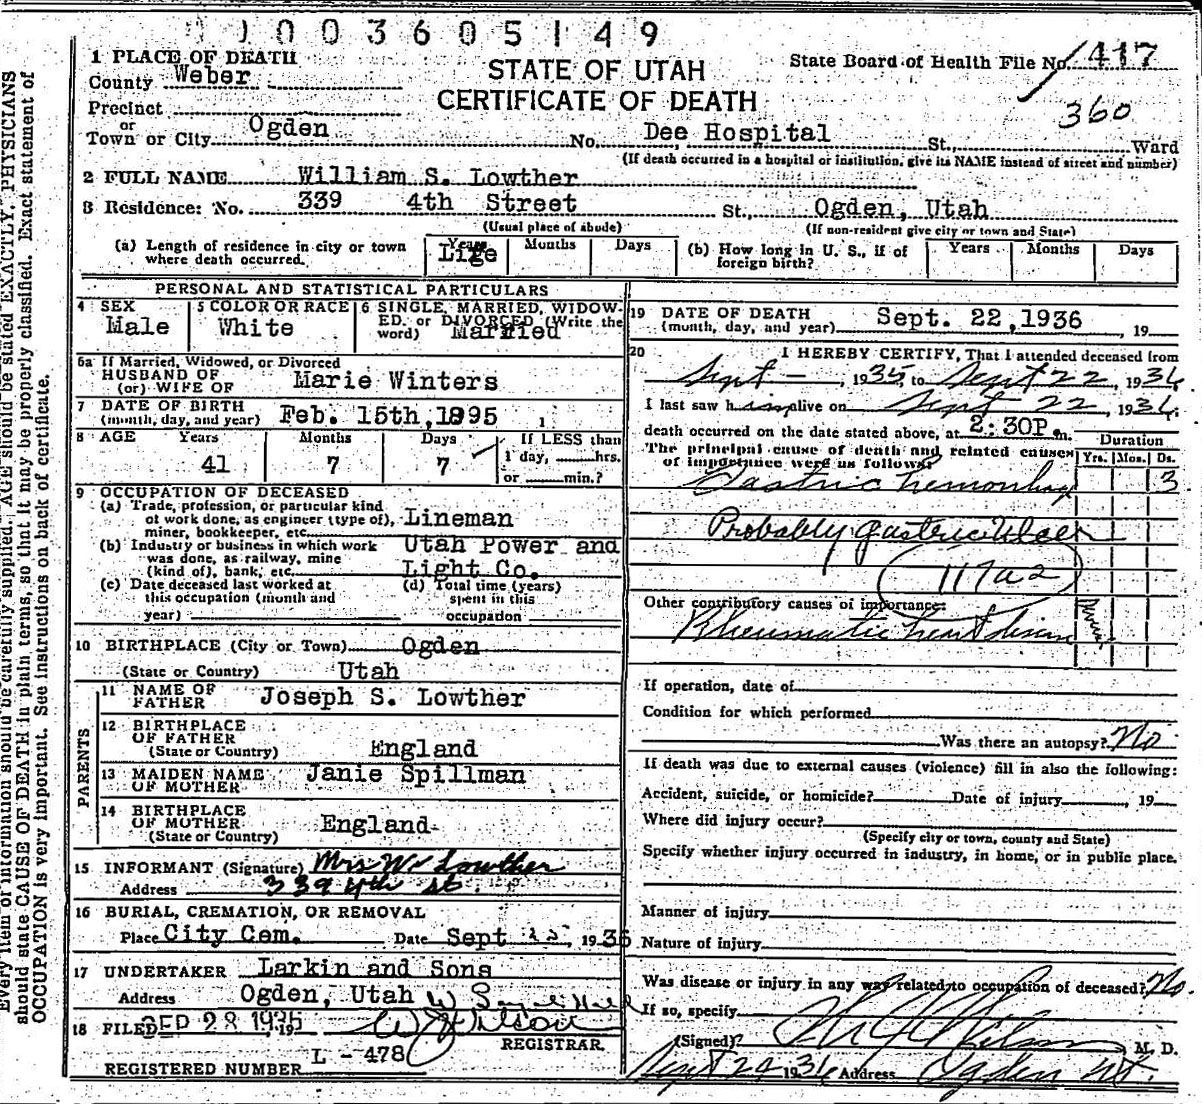 1003605149
1 PLACE OF DEATH
County Weber
STATE OF UTAH
CERTIFICATE OF DEATH
State Board of Health File No. 417
360
Precinct
or
Town or City Ogden No. Dee Hospital St., Ward
(If death occurred in a hospital or institution, give its NAME instead of street and number)
2 FULL NAME William S. Lowther
3 Residence: No. 339 4th Street St., Ogden, Utah
(Usual place of abode) (If non-resident give city or town and State)
(a) Length of residence in city or town where death occurred. Years Life Months Days
(b) How long in U. S., if of foreign birth? Years Months Days
PERSONAL AND STATISTICAL PARTICULARS
4 SEX Male
5 COLOR OR RACE White
6 SINGLE, MARRIED, WIDOWED, or DIVORCED (Write the word) Married
6a If Married, Widowed, or Divorced
HUSBAND OF
(or) WIFE OF Marie Winters
7 DATE OF BIRTH
(month, day, and year) Feb. 15th, 1895 1
8 AGE Years Months Days If LESS than
41 7 7 1 day, hrs.
or min.?
9 OCCUPATION OF DECEASED
(a) Trade, profession, or particular kind
of work done, as engineer (type of),
miner, bookkeeper, etc. Lineman
(b) Industry or business in which work
was done, as railway, mine
(kind of), bank, etc. Utah Power and
Light Co.
(c) Date deceased last worked at
this occupation (month and
year)
(d) Total time (years)
spent in this
occupation
10 BIRTHPLACE (City or Town) Ogden
(State or Country) Utah
PARENTS
11 NAME OF
FATHER Joseph S. Lowther
12 BIRTHPLACE
OF FATHER
(State or Country) England
13 MAIDEN NAME
OF MOTHER Janie Spillman
14 BIRTHPLACE
OF MOTHER
(State or Country) England
15 INFORMANT (Signature) Mrs Wm Lowther
Address 339 4th St.
16 BURIAL, CREMATION, OR REMOVAL
Place City Cem. Date Sept 1936
17 UNDERTAKER Larkin and Sons
Address Ogden, Utah
18 FILED SEP 28 1936, 19
REGISTRAR.
L - 478
REGISTERED NUMBER
19 DATE OF DEATH
(month, day, and year) Sept. 22, 1936 19
20 I HEREBY CERTIFY, That I attended deceased from
Sept - , 1935, to Sept 22, 1936.
I last saw him alive on Sept 22, 1936.
death occurred on the date stated above, at 2:30P.m.
The principal cause of death and related causes
of importance were as follows:
Duration
Yrs. Mos. Ds.
Gastric hemorrhage 3
Probably gastric ulcer
117a2
Other contributory causes of importance:
Rheumatic heart disease
If operation, date of
Condition for which performed
Was there an autopsy? No
If death was due to external causes (violence) fill in also the following:
Accident, suicide, or homicide? Date of injury , 19
Where did injury occur?
(Specify city or town, county and State)
Specify whether injury occurred in industry, in home, or in public place.
Manner of injury
Nature of injury
Was disease or injury in any way related to occupation of deceased? No.
If so, specify
(Signed)? M. D.
Sept 24 1936 Address Ogden Ut.
Every item of information should be carefully supplied. AGE should be stated EXACTLY. PHYSICIANS
should state CAUSE OF DEATH in plain terms, so that it may be properly classified. Exact statement of
OCCUPATION is very important. See instructions on back of certificate.